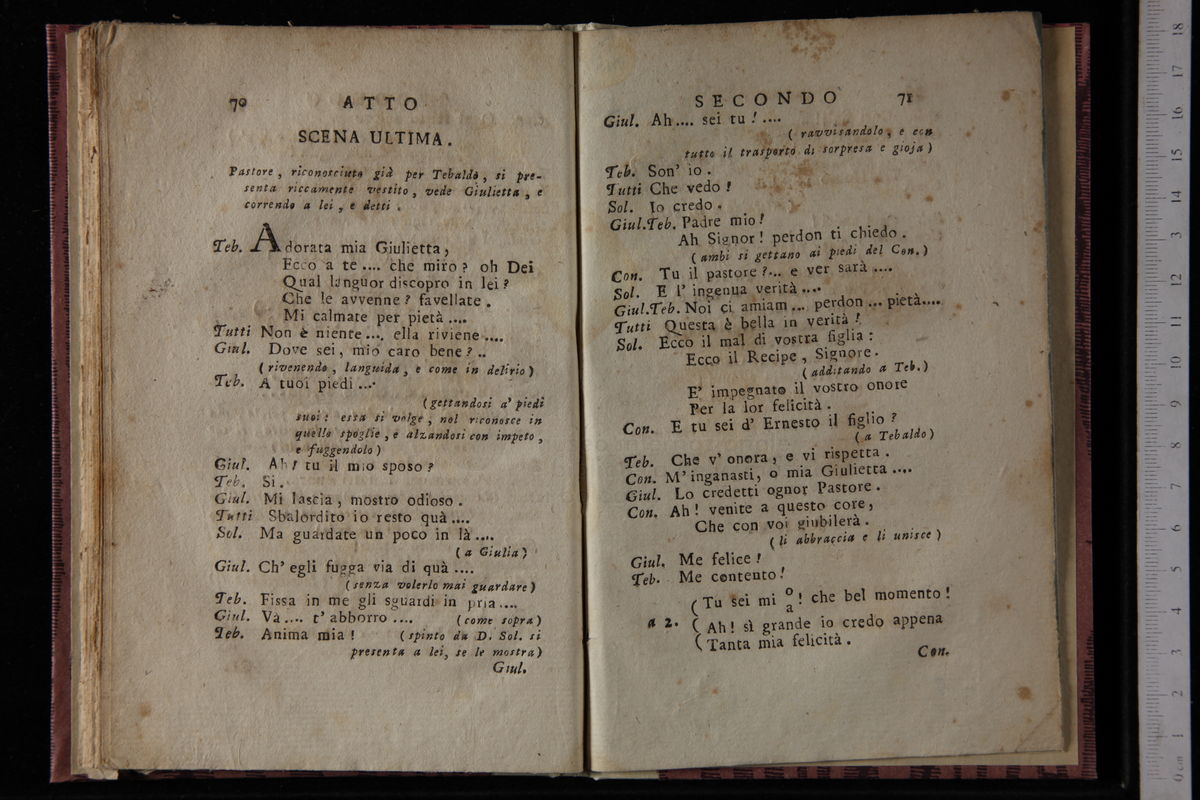 70 ATTO
SCENA ULTIMA.
Pastore, riconosciuto già per Tebaldo, si pre-
senta riccamente vestito, vede Giulietta, e
correndo a lei, e detti.
Teb. Adorata mia Giulietta,
Ecco a te .... che miro? oh Dei
Qual languor discopro in lei?
Che le avvenne? favellate.
Mi calmate per pietà ....
Tutti Non è niente ... ella riviene ....
Giul. Dove sei, mio caro bene? ..
(rivenendo, languida, e come in delirio)
Teb. A tuoi piedi ....
(gettandosi a' piedi
suoi: essa si volge, nol riconosce in
quelle spoglie, e alzandosi con impeto,
e fuggendolo)
Giul. Ah! tu il mio sposo?
Teb. Si.
Giul. Mi lascia, mostro odioso.
Tutti Sbalordito io resto quà ....
Sol. Ma guardate un poco in là ....
(a Giulia)
Giul. Ch' egli fugga via di quà ....
(senza volerlo mai guardare)
Teb. Fissa in me gli sguardi in pria ....
Giul. Và .... t' abborro .... (come sopra)
Teb. Anima mia! (spinto da D. Sol. si
presenta a lei, se le mostra)
Giul.
SECONDO 71
Giul. Ah .... sei tu! ....
(ravvisandolo, e con
tutto il trasporto di sorpresa e gioja)
Teb. Son' io.
Tutti Che vedo!
Sol. Io credo.
Giul.Teb. Padre mio!
Ah Signor! perdon ti chiedo.
(ambi si gettano ai piedi del Con.)
Con. Tu il pastore? ... e ver sarà ....
Sol. E l' ingenua verità ....
Giul.Teb. Noi ci amiam ... perdon ... pietà....
Tutti Questa è bella in verità!
Sol. Ecco il mal di vostra figlia:
Ecco il Recipe, Signore.
(additando a Teb.)
E' impegnato il vostro onore
Per la lor felicità.
Con. E tu sei d' Ernesto il figlio?
(a Tebaldo)
Teb. Che v' onora, e vi rispetta.
Con. M' inganasti, o mia Giulietta ....
Giul. Lo credetti ognor Pastore.
Con. Ah! venite a questo core,
Che con voi giubilerà.
(li abbraccia e li unisce)
Giul. Me felice!
Teb. Me contento!
(Tu sei mi o/a! che bel momento!
a 2. (Ah! sì grande io credo appena
(Tanta mia felicità.
Con.